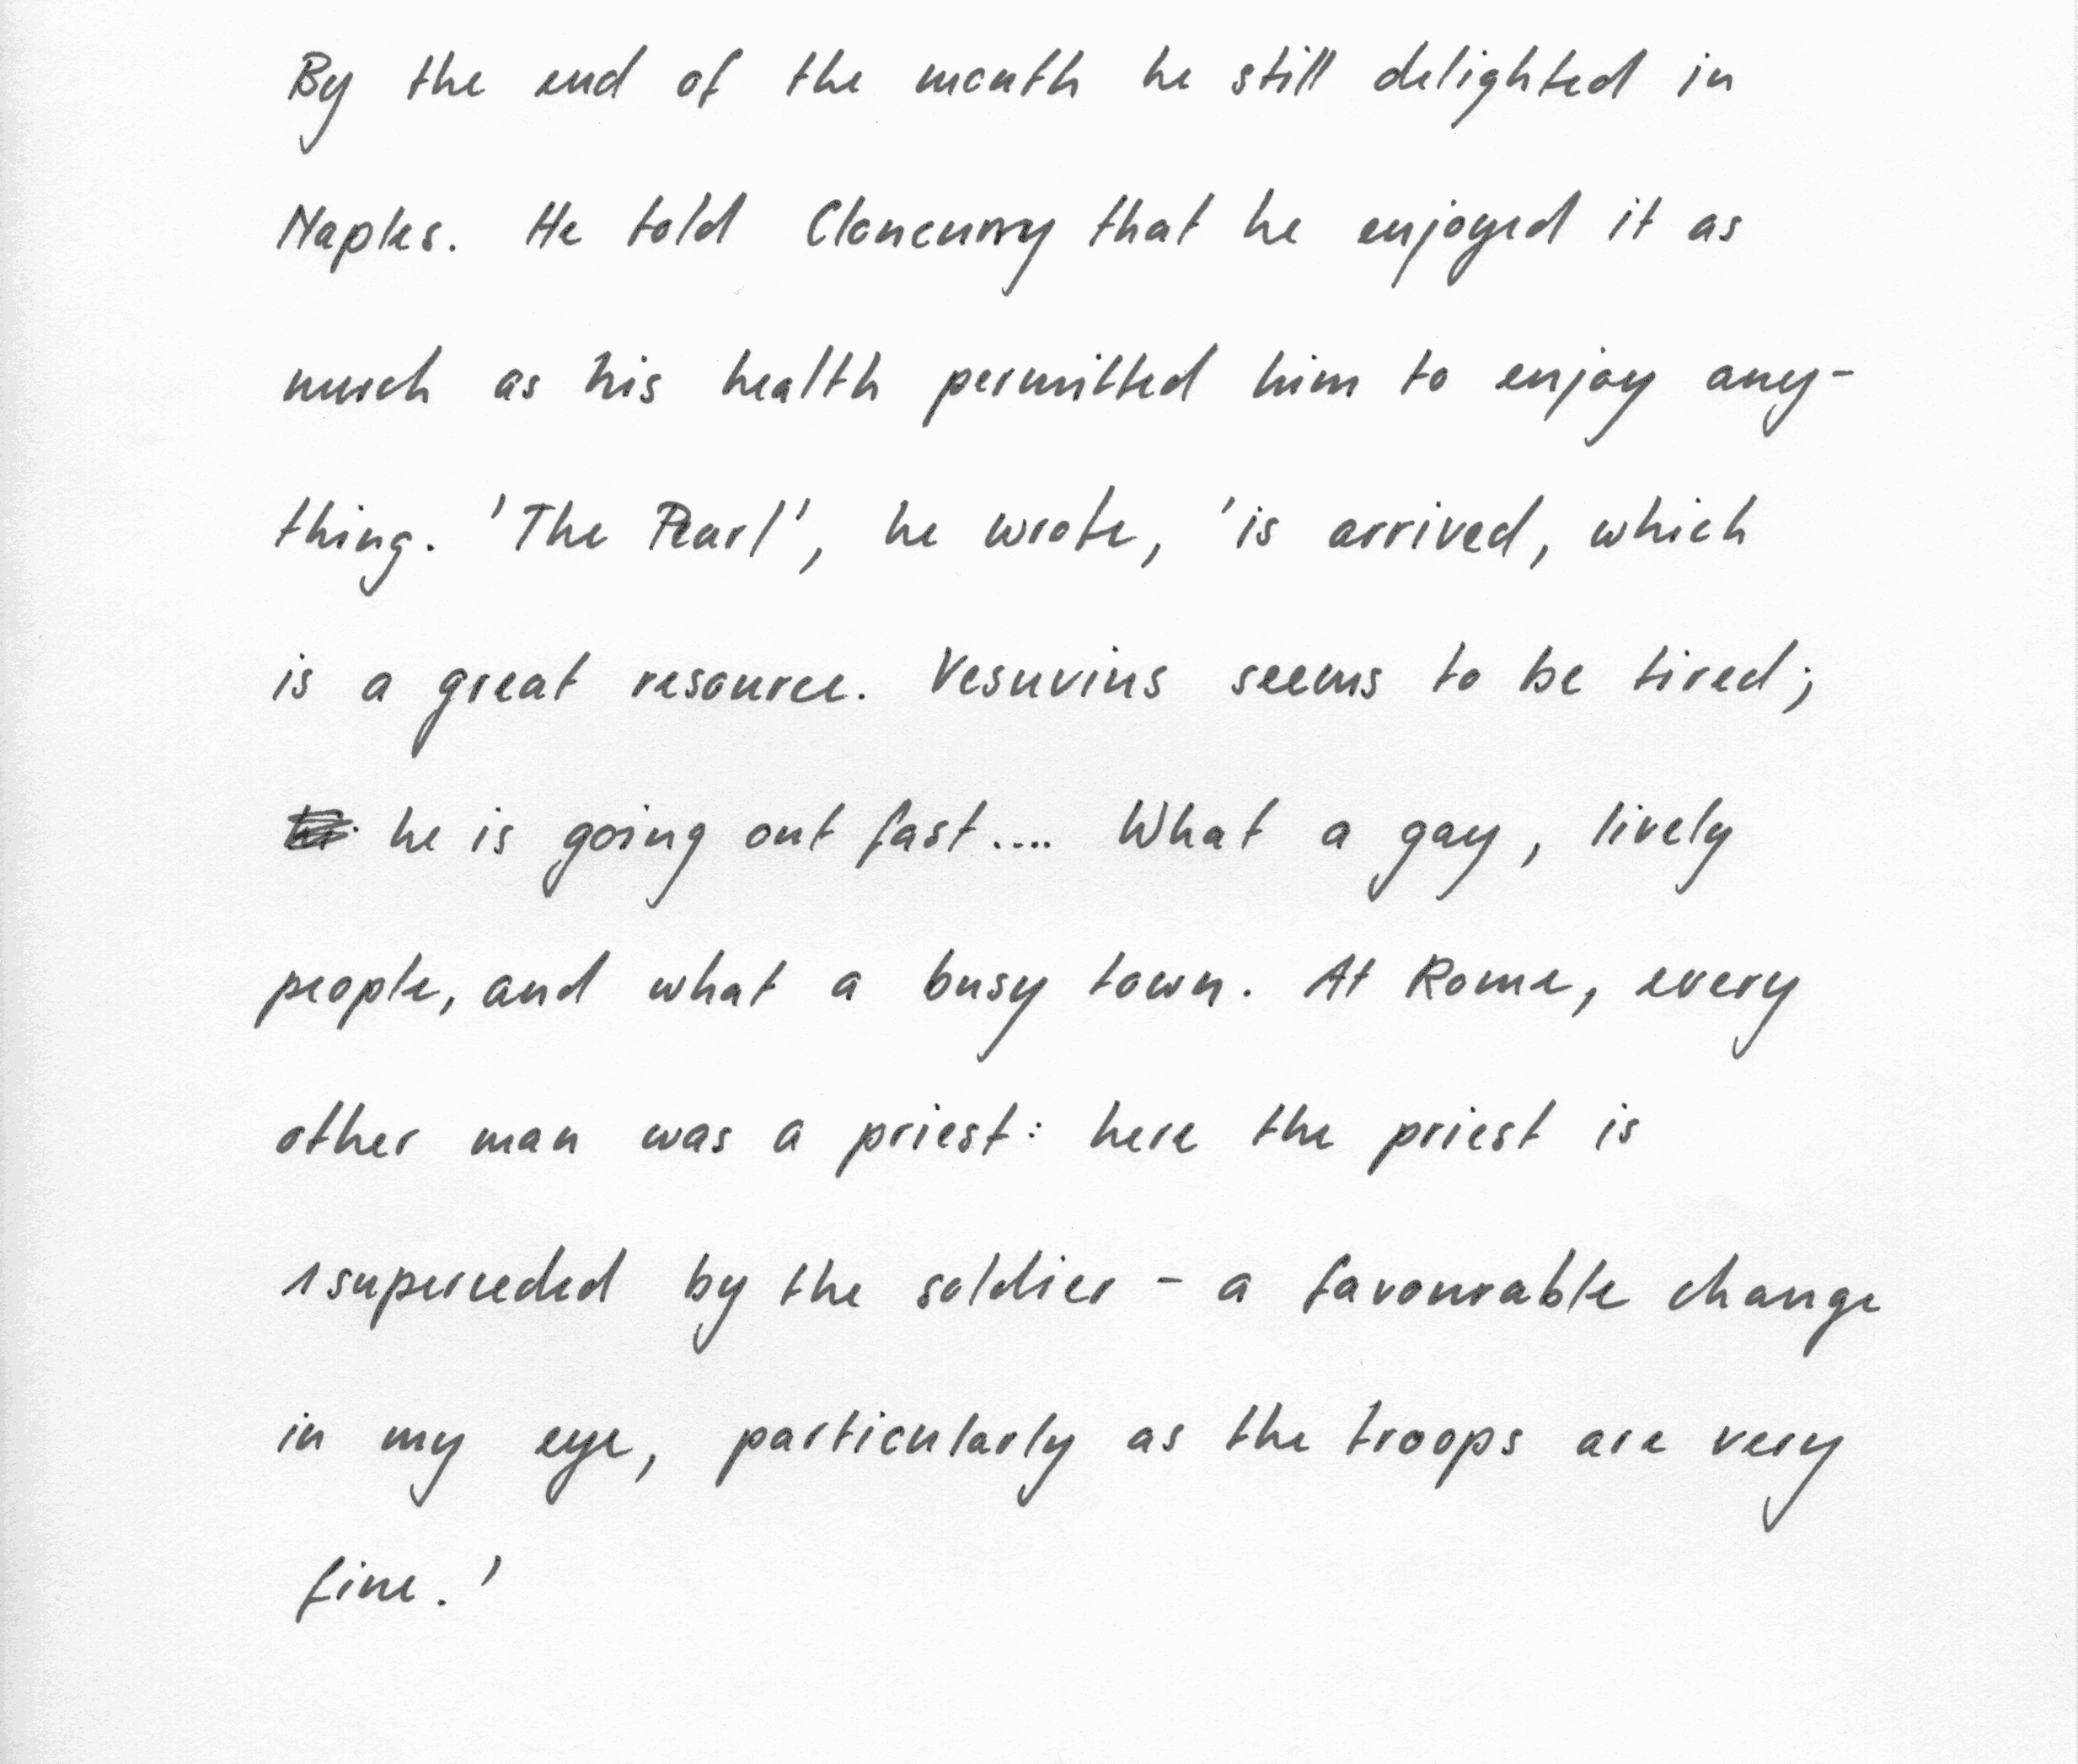 By the end of the month he still delighted in
Naples. He told Cloncurry that he enjoyed it as
much as his health permitted him to enjoy any-
thing. 'The Pearl', he wrote, 'is arrived, which
is a great resource. Vesuvius seems to be tired;
he is going out fast.... What a gay, lively
people, and what a busy town. At Rome, every
other man was a priest: here the priest is
superceded by the soldier - a favourable change
in my eye, particularly as the troops are very
fine.'